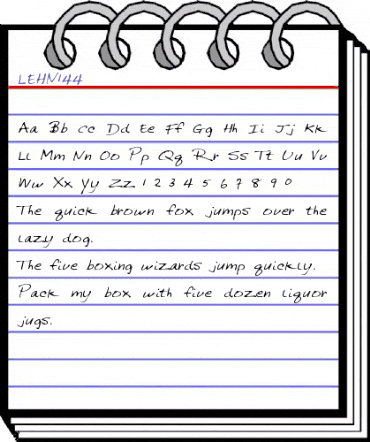 LEHN144
Aa Bb Cc Dd Ee Ff Gg Hh Ii Jj Kk
Ll Mm Nn Oo Pp Qq Rr Ss Tt Uu Vv
Ww Xx Yy Zz 1 2 3 4 5 6 7 8 9 0
The quick brown fox jumps over the
lazy dog.
The five boxing wizards jump quickly.
Pack my box with five dozen liquor
jugs.